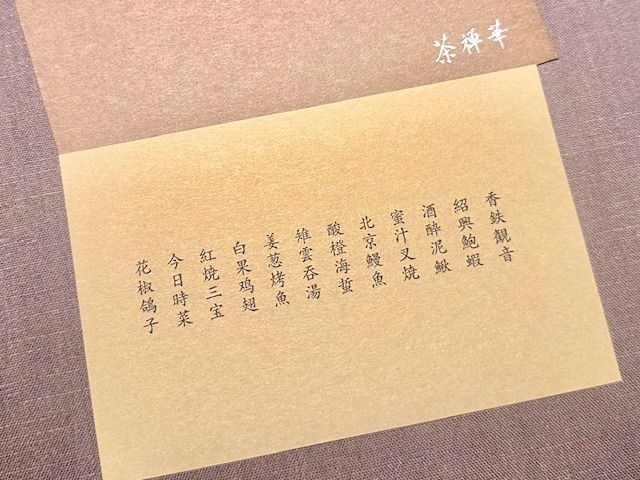 茶禅華
香鉄観音
紹興鮑蝦
酒醉泥鰍
蜜汁叉焼
北京鰻魚
酸橙海蜇
雉雲吞湯
姜葱烤魚
白果鸡翅
紅燒三宝
今日時菜
花椒鴿子